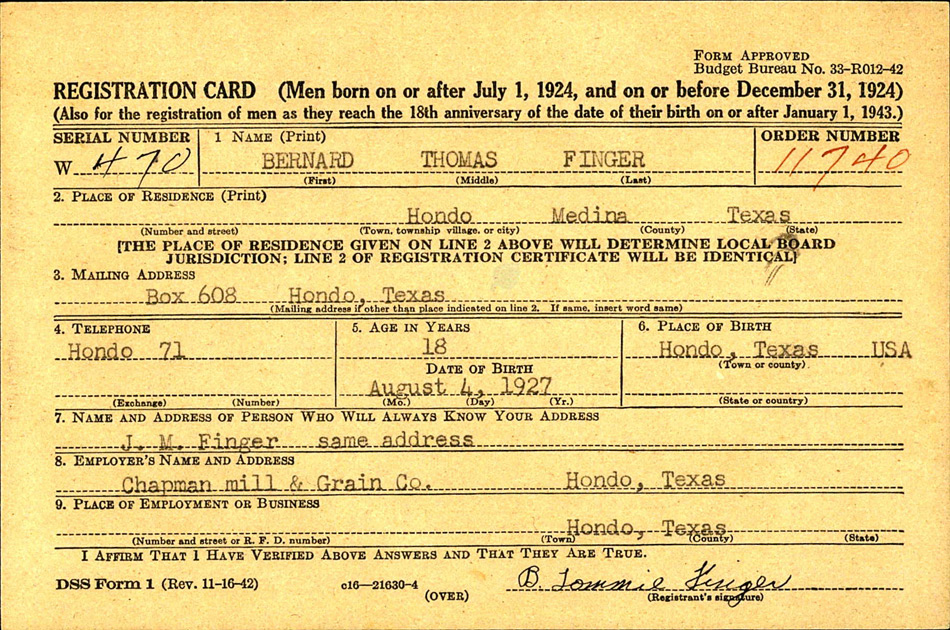 FORM APPROVED
Budget Bureau No. 33-R012-42
REGISTRATION CARD (Men born on or after July 1, 1924, and on or before December 31, 1924)
(Also for the registration of men as they reach the 18th anniversary of the date of their birth on or after January 1, 1943.)
SERIAL NUMBER 1 NAME (Print) ORDER NUMBER
W 470 BERNARD THOMAS FINGER 11740
(First) (Middle) (Last)
2. PLACE OF RESIDENCE (Print)
Hondo Medina Texas
(Number and street) (Town, township village, or city) (County) (State)
[THE PLACE OF RESIDENCE GIVEN ON LINE 2 ABOVE WILL DETERMINE LOCAL BOARD
JURISDICTION; LINE 2 OF REGISTRATION CERTIFICATE WILL BE IDENTICAL]
3. MAILING ADDRESS
Box 608 Hondo, Texas
(Mailing address if other than place indicated on line 2. If same, insert word same)
4. TELEPHONE 5. AGE IN YEARS 6. PLACE OF BIRTH
Hondo 71 18 Hondo, Texas USA
(Town or county)
DATE OF BIRTH
August 4, 1927
(Exchange) (Number) (Mo.) (Day) (Yr.) (State or country)
7. NAME AND ADDRESS OF PERSON WHO WILL ALWAYS KNOW YOUR ADDRESS
J. M. Finger same address
8. EMPLOYER'S NAME AND ADDRESS
Chapman mill & Grain Co. Hondo, Texas
9. PLACE OF EMPLOYMENT OR BUSINESS
Hondo, Texas
(Number and street or R. F. D. number) (Town) (County) (State)
I AFFIRM THAT I HAVE VERIFIED ABOVE ANSWERS AND THAT THEY ARE TRUE.
DSS Form 1 (Rev. 11-16-42) c16-21630-4 B. Tommie Finger
(OVER) (Registrant's signature)